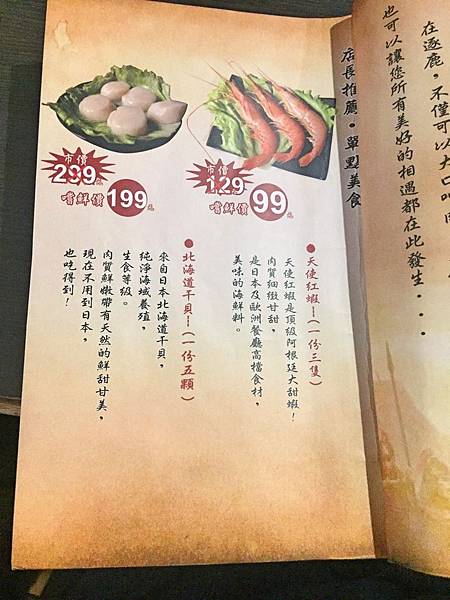 在逐鹿，不僅可以大口吃肉
也可以讓您所有美好的相遇都在此發生...
店長推薦。單點美食
市價
129元
嚐鮮價 99元
●天使紅蝦—(一份三隻)
天使紅蝦是頂級阿根廷大甜蝦！
肉質細緻甘甜，
是日本及歐洲餐廳高檔食材，
美味的海鮮料。
市價
289元
嚐鮮價 199元
●北海道干貝—(一份五顆)
來自日本北海道干貝，
純淨海域養殖，
生食等級。
肉質鮮嫩帶有天然的鮮甜甘美，
現在不用到日本，
也吃得到！